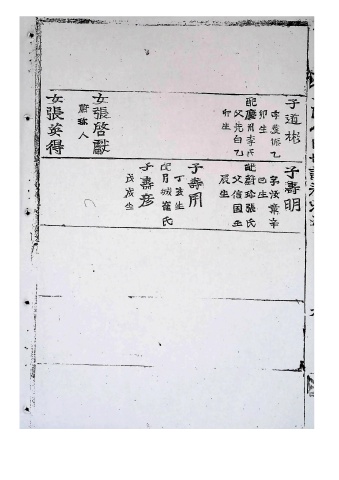 子道彬
卯生
配慶州李氏
父光白乙
卯生
女張啓獻
蔚珍人
女張英得
子壽明
字汝葉辛
巳生
配蔚珍張氏
父信國壬
辰生
子壽用
丁亥生
配月城崔氏
子壽彦
戊戌生